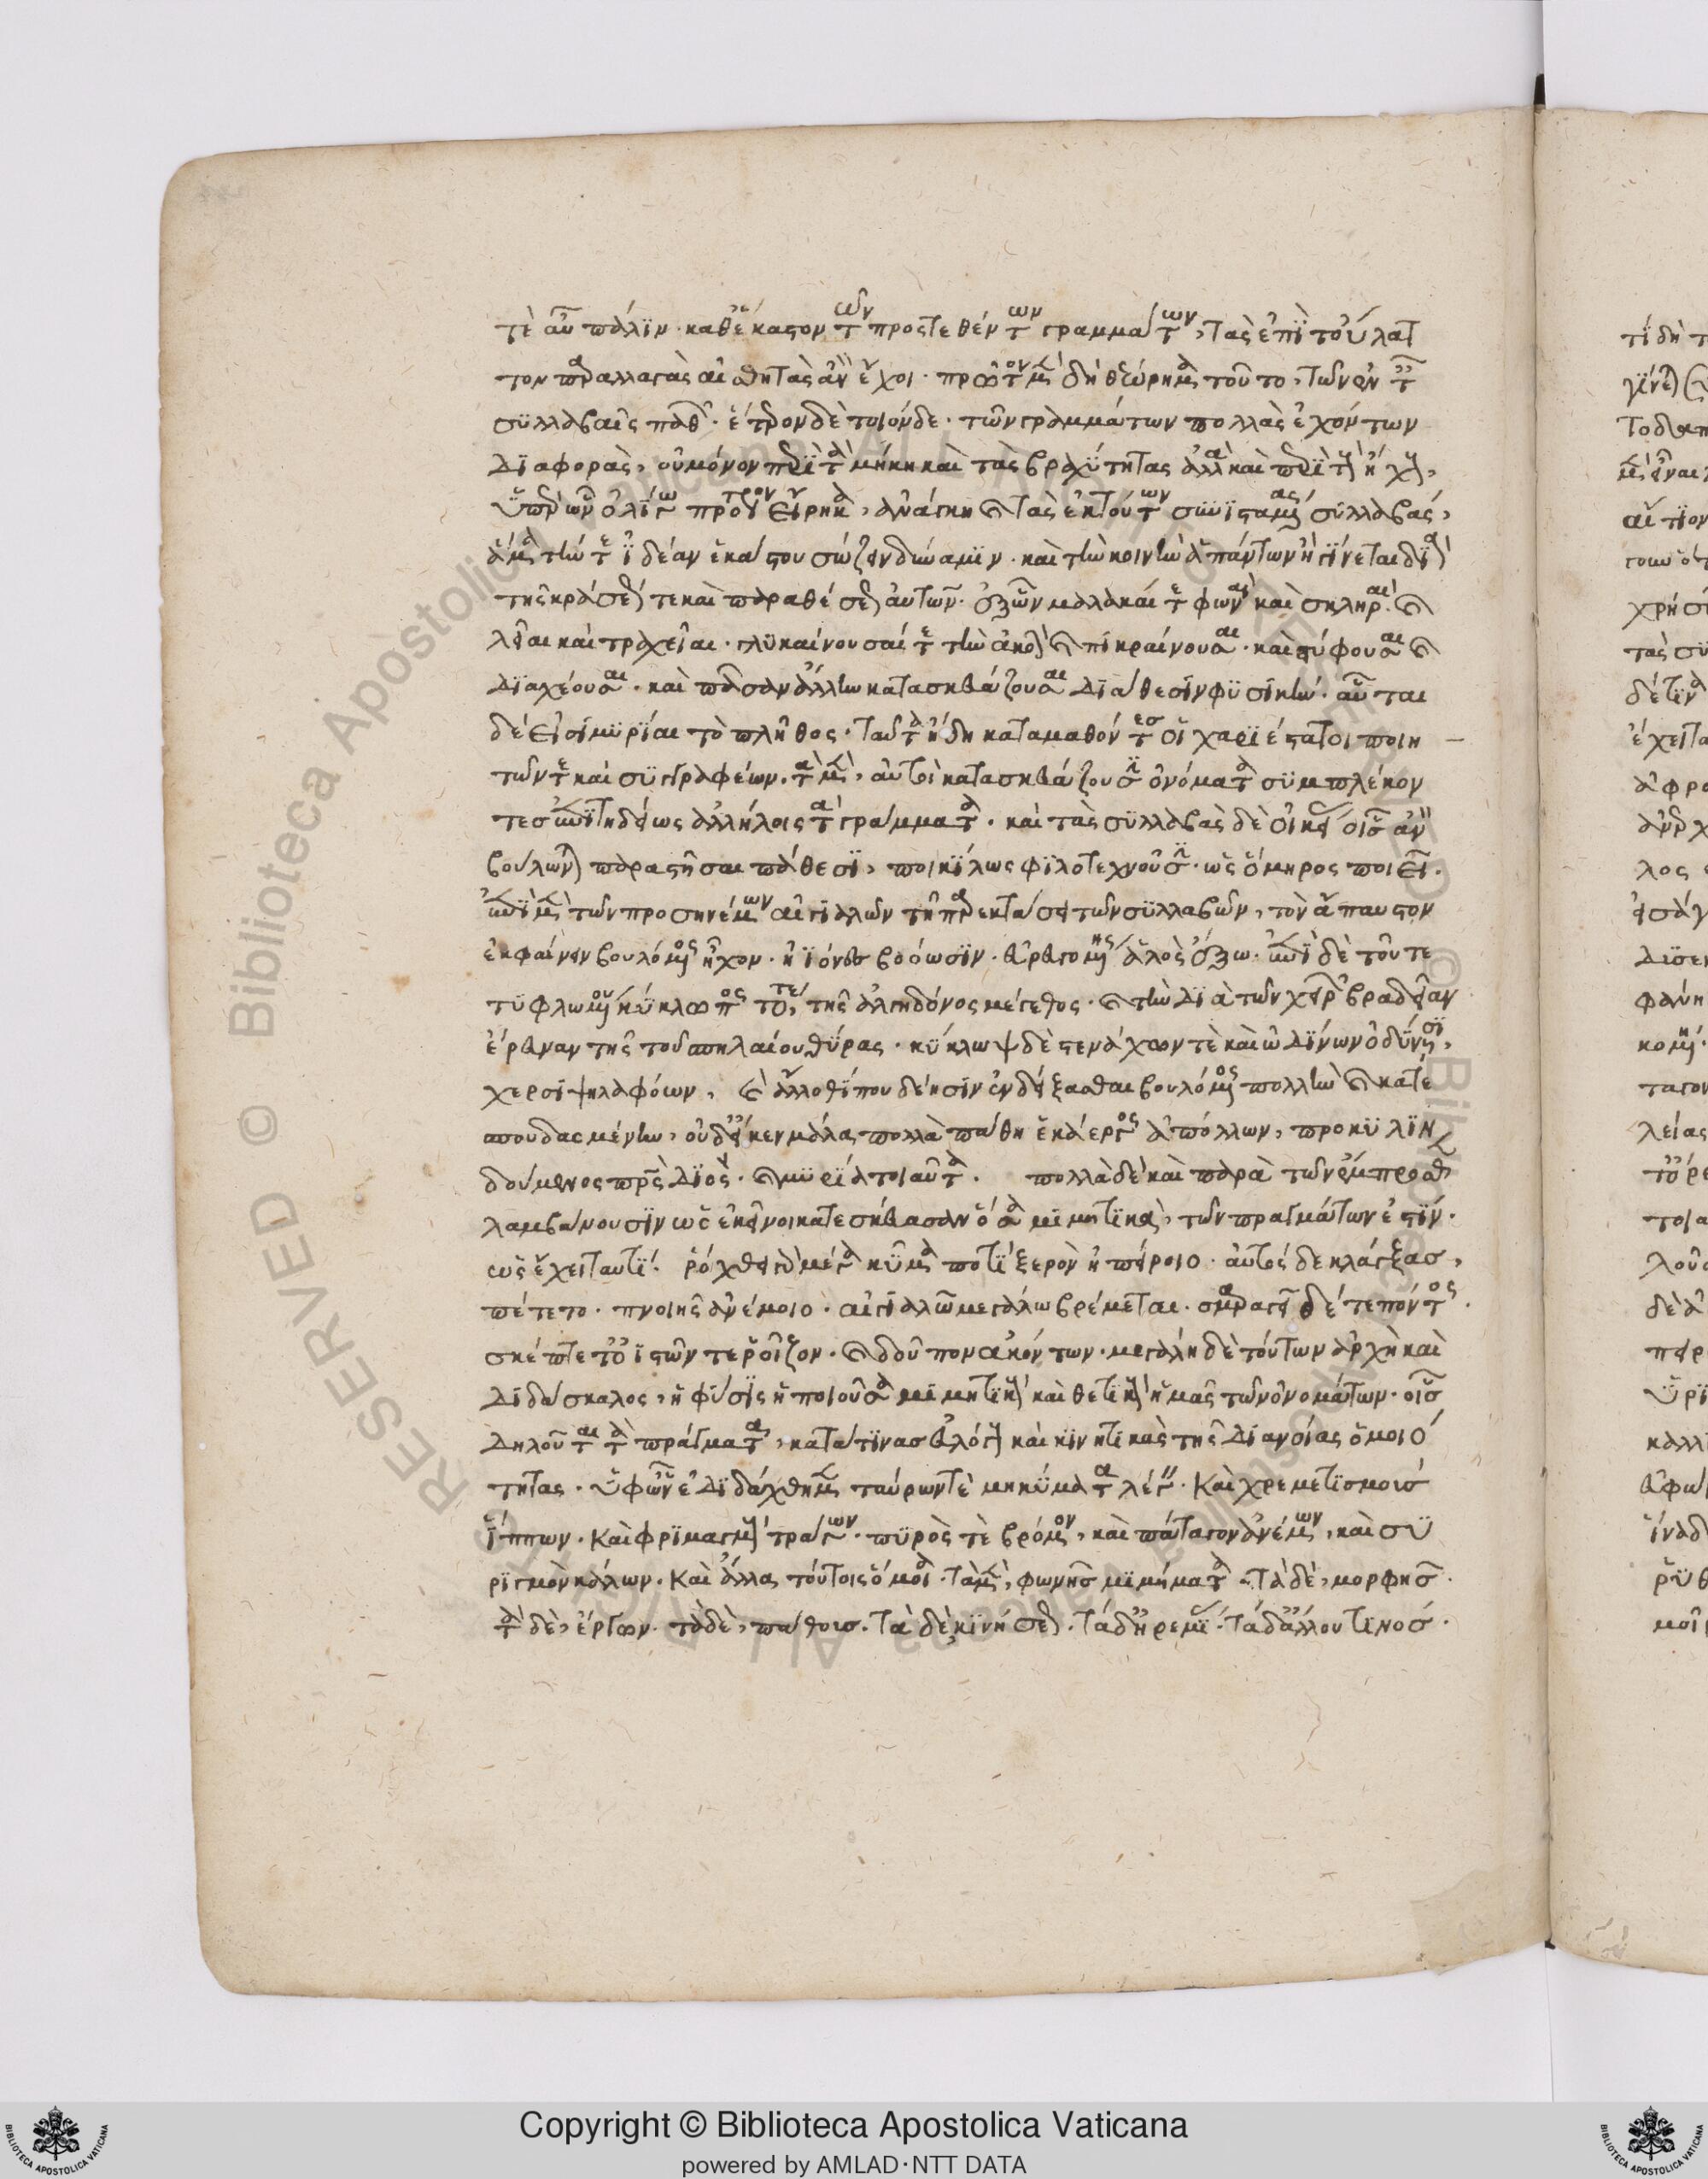 τὲ αὖ πάλϊν· καθ' ἕκαστον τῶν προστεθέντων γραμμάτων, τὰς ἐπὶ τοὔλατ
τον παραλλαγὰς αἰσθητὰς ἂν ἔχοι· πρῶτον μὲν δὴ θεώρημα τοῦτο, τῶν ἐν ταῖς
συλλαβαῖς παθῶν· ἕτερον δὲ τοιόνδε· τῶν γραμμάτων πολλὰς ἐχόντων
διαφορὰς, οὐ μόνον περὶ τὰ μήκη καὶ τὰς βραχύτητας ἀλλὰ καὶ περὶ τοὺς ἤχους,
ὑπὲρ ὧν ὀλίγω πρότερον εἴρηκα, ἀνάγκη καὶ τὰς ἐκ τούτων συνισταμένας συλλαβάς,
ἅμα τήν τε ἰδέαν ἑκάστου σώζειν δύναμιν· καὶ τὴν κοινὴν ἁπάντων ἣ γίνεται διὰ
τῆς κράσεώς τε καὶ παραθέσεως αὐτῶν· ἐξ ὧν μαλακαί τε φωναὶ καὶ σκληραὶ καὶ
λεῖαι καὶ τραχεῖαι· γλυκαίνουσαί τε τὴν ἀκοὴν καὶ πικραίνουσαι· καὶ στύφουσαι καὶ
διαχέουσαι· καὶ πᾶσαν ἄλλην κατασκευάζουσαι διάθεσιν φυσικήν· αὗται
δέ εἰσι μυρίαι τὸ πλῆθος· ταῦτα ἤδη καταμαθόντες οἱ χαριέστατοι ποιη
τῶν τε καὶ συγγραφέων· τὰ μὲν, αὐτοὶ κατασκευάζουσιν ὀνόματα συμπλέκον
τες ἐπιτηδείως ἀλλήλοις τὰ γράμματα· καὶ τὰς συλλαβὰς δὲ οἰκείως οἷς ἂν
βούλωνται παραστῆσαι πάθεσι, ποικίλως φιλοτεχνοῦσιν· ὡς ὅμηρος ποιεῖ·
ἐπὶ μὲν τῶν προσηνέμων αἰγιαλῶν τῆ παρεκτάσει τῶν συλλαβῶν, τὸν ἄπαυστον
ἐκφαίνειν βουλόμενος ἦχον· ἠϊόνες βοόωσιν· ἐρευγομένης ἁλὸς ἔξω· ἐπὶ δὲ τοῦ τε
τυφλωμένου κύκλωπος τό τε τῆς ἀλγηδόνος μέγεθος· καὶ τὴν διὰ τῶν χειρῶν βραδεῖαν
ἔρευναν τῆς τοῦ σπηλαίου θύρας· κύκλωψ δὲ στενάχων τὲ καὶ ὠδίνων ὀδύνησι,
χερσὶ ψηλαφόων, καὶ ἄλλοθί που δέησιν ἐνδείξασθαι βουλόμενος πολλὴν καὶ κατε
σπουδασμένην, οὐδ' εἴ κεν μάλα πολλὰ πάθη ἑκάεργος ἀπόλλων, προκυλιν
δούμενος πρὸς Διὸς· καὶ μυρία τοιαῦτα. πολλὰ δὲ καὶ παρὰ τῶν ἔμπροσθεν
λαμβάνουσιν ὡς ἐκεῖνοι κατεσκεύασαν ὅσα μιμητικὰ, τῶν πραγμάτων ἐστίν·
ὡς ἔχει ταυτί· ῥόχθει γὰρ μέγα κῦμα ποτὶ ξερὸν ἠπείροιο· αὐτὸς δὲ κλάγξας,
πέτετο· πνοιῆς ἀνέμοιο· αἰγιαλῶ μεγάλω βρέμεται· σμαραγεῖ δέ τε πόντος·
σκέπτετο ὀϊστῶν τε ῥοῖζον· καὶ δοῦπον ἀκόντων· μεγάλη δὲ τούτων ἀρχὴ καὶ
διδάσκαλος, ἡ φύσις ἡ ποιοῦσα μιμητικοὺς καὶ θετικοὺς ἡμᾶς τῶν ὀνομάτων· οἷς
δηλοῦται τὰ πράγματα, κατά τινας εὐλόγους καὶ κινητικὰς τῆς διανοίας ὁμοιό
τητας· ὑφ' ὧν ἐδιδάχθημεν ταύρων τὲ μηκύματα λέγειν· Καὶ χρεμετισμοὺς
ἵππων· Καὶ φριμαγμοὺς τράγων· πυρὸς τὲ βρόμον, καὶ πάταγον ἀνέμων, καὶ συ
ριγμὸν κάλων· Καὶ ἄλλα τούτοις ὅμοια· τὰ μὲν, φωνῆς μιμήματα· τὰ δὲ, μορφῆς·
τὰ δὲ, ἔργων· τὰ δὲ, πάθους· τὰ δὲ, κινήσεως· τὰ δ' ἠρεμίας· τὰ δ' ἄλλου τινος·